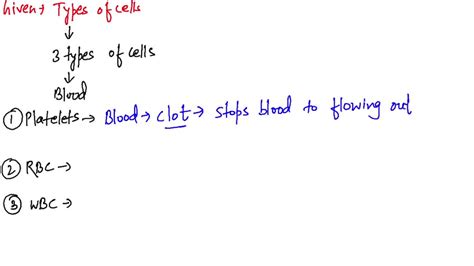 Given → Types of cells
↓
3 types of cells
↓
Blood
① Platelets → Blood → clot → stops blood to flowing out
② RBC →
③ WBC →